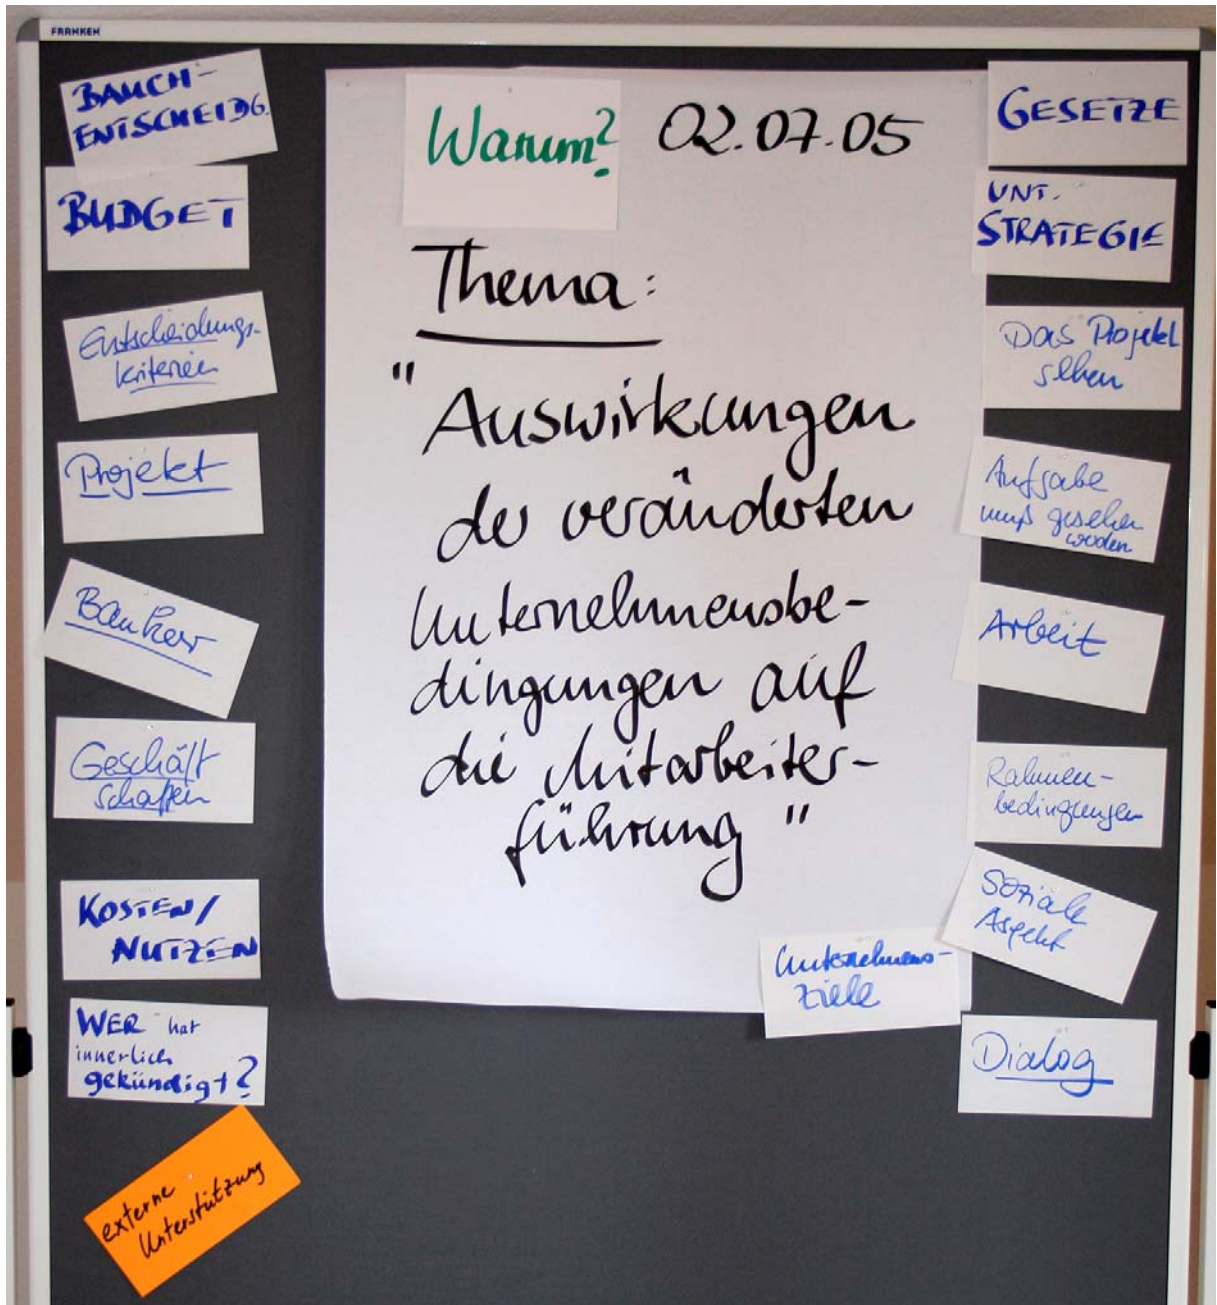 FRANKEN
BAUCH-
ENTSCHEIDG.
BUDGET
Entscheidungs-
kriterien
Projekt
Banker
Geschäft
schaffen
KOSTEN/
NUTZEN
WER hat
innerlich
gekündigt?
externe
Unterstützung
Warum?
02.07.05
Thema:
"Auswirkungen
der veränderten
Unternehmensbe-
dingungen auf
die Mitarbeiter-
führung"
Unternehmens-
ziele
GESETZE
UNT.
STRATEGIE
Das Projekt
sehen
Aufgabe
muß gesehen
werden
Arbeit
Rahmen-
bedingungen
Soziale
Aspekt
Dialog